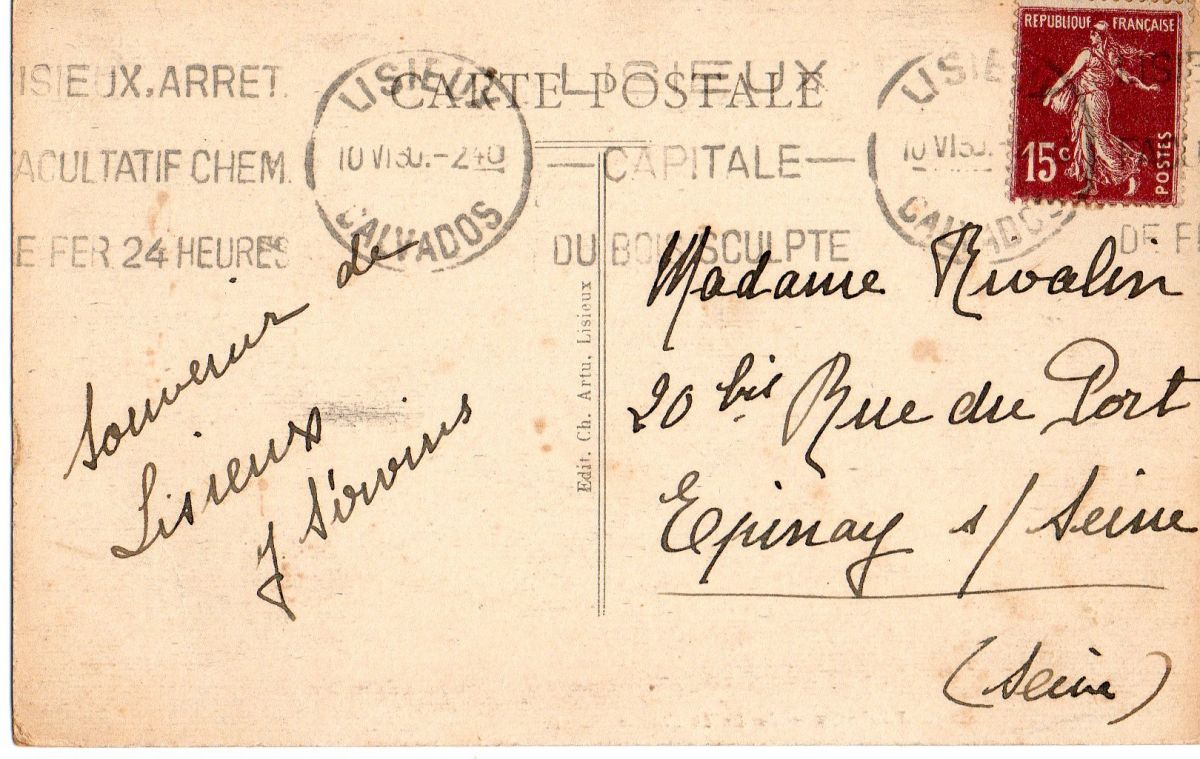 RÉPUBLIQUE FRANÇAISE
15c POSTES
CARTE POSTALE
ISIEUX, ARRET.
ACULTATIF CHEM.
E FER 24 HEURES
LISIEUX
CALVADOS
LISIEUX
—CAPITALE—
DU BOIS SCULPTE
LISIE
10 VI 30.-
DE F
Souvenir de
Lisieux
Edit. Ch. Artu, Lisieux
Madame Rivalin
20 bis Rue du Port
Epinay s/ Seine
(Seine)